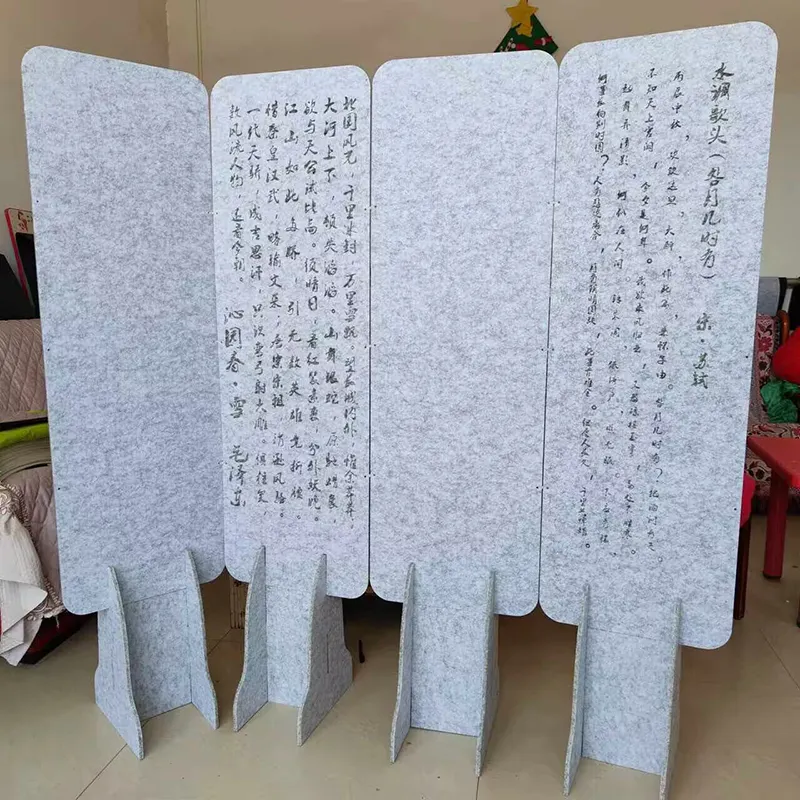 北国风光，千里冰封，万里雪飘。望长城内外，惟余莽莽，
大河上下，顿失滔滔。山舞银蛇，原驰蜡象，
欲与天公试比高。须晴日，看红装素裹，分外妖娆。
江山如此多娇，引无数英雄竞折腰。
惜秦皇汉武，略输文采，唐宗宋祖，稍逊风骚。
一代天骄，成吉思汗，只识弯弓射大雕。俱往矣
数风流人物，还看今朝。
沁园春·雪 毛泽东
水调歌头（明月几时有） 宋·苏轼
丙辰中秋，欢饮达旦，大醉，作此篇，兼怀子由。明月几时有？把酒问青天，
不知天上宫阙，今夕是何年。我欲乘风归去，又恐琼楼玉宇，高处不胜寒。
起舞弄清影，何似在人间。转朱阁，低绮户，照无眠。不应有恨，
何事长向别时圆？人有悲欢离合，月有阴晴圆缺，此事古难全。但愿人长久，千里共婵娟。